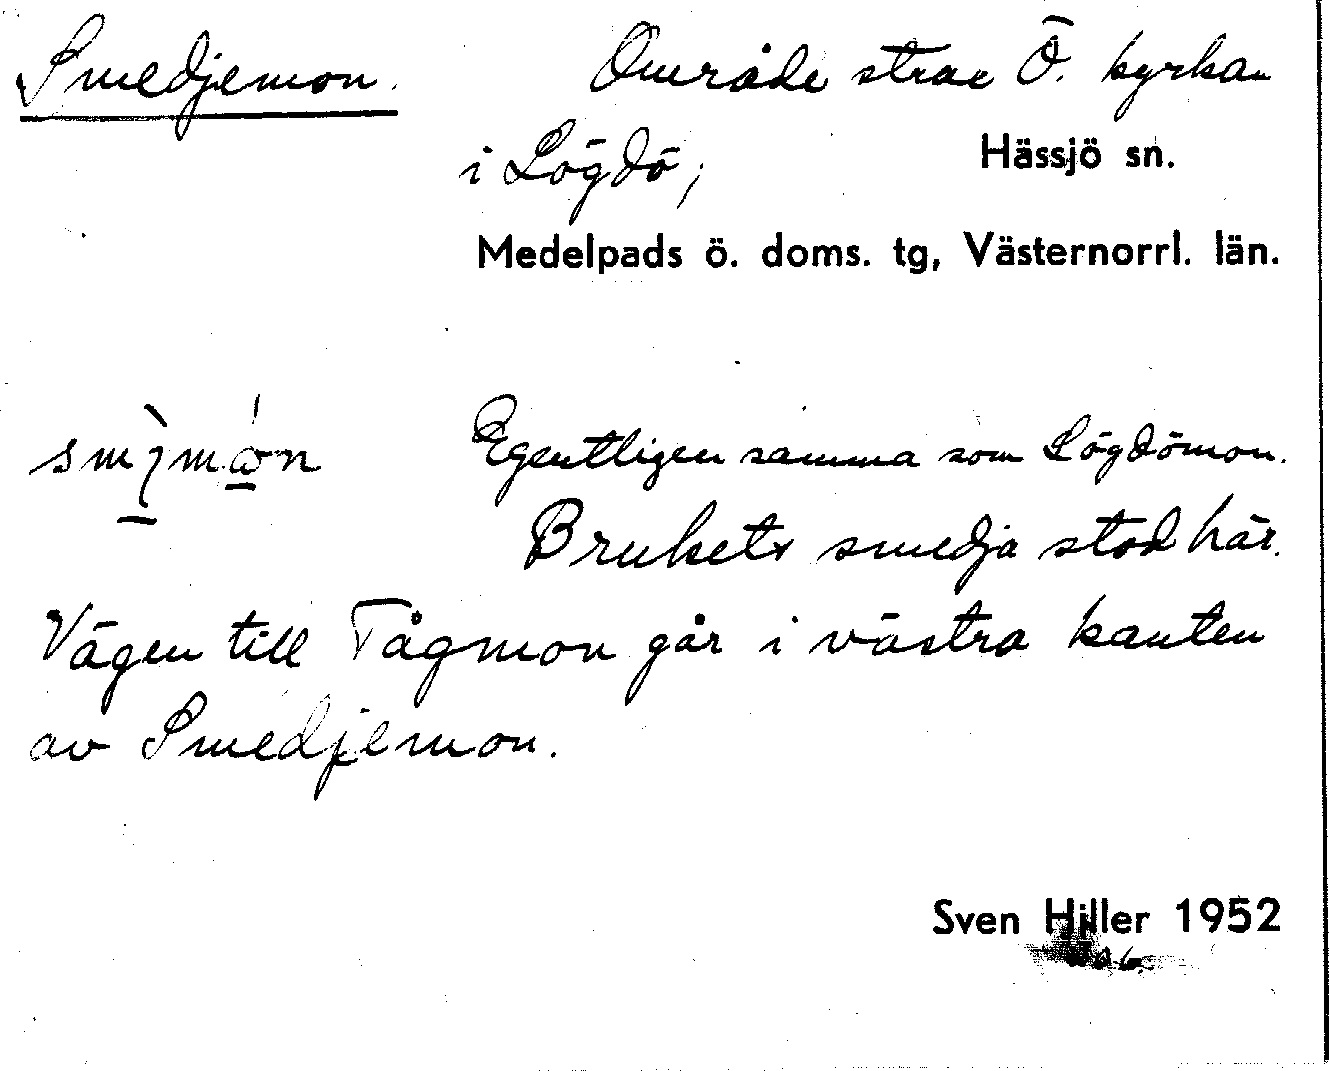 Smedjemon. Område strax Ö. kyrkan
i Lögdö, Hässjö sn.
Medelpads ö. doms. tg, Västernorrl. län.
Egentligen samma som Lögdömon.
Brukets smedja stod här.
Vägen till Tågmon går i västra kanten
av Smedjemon.
Sven Hiller 1952